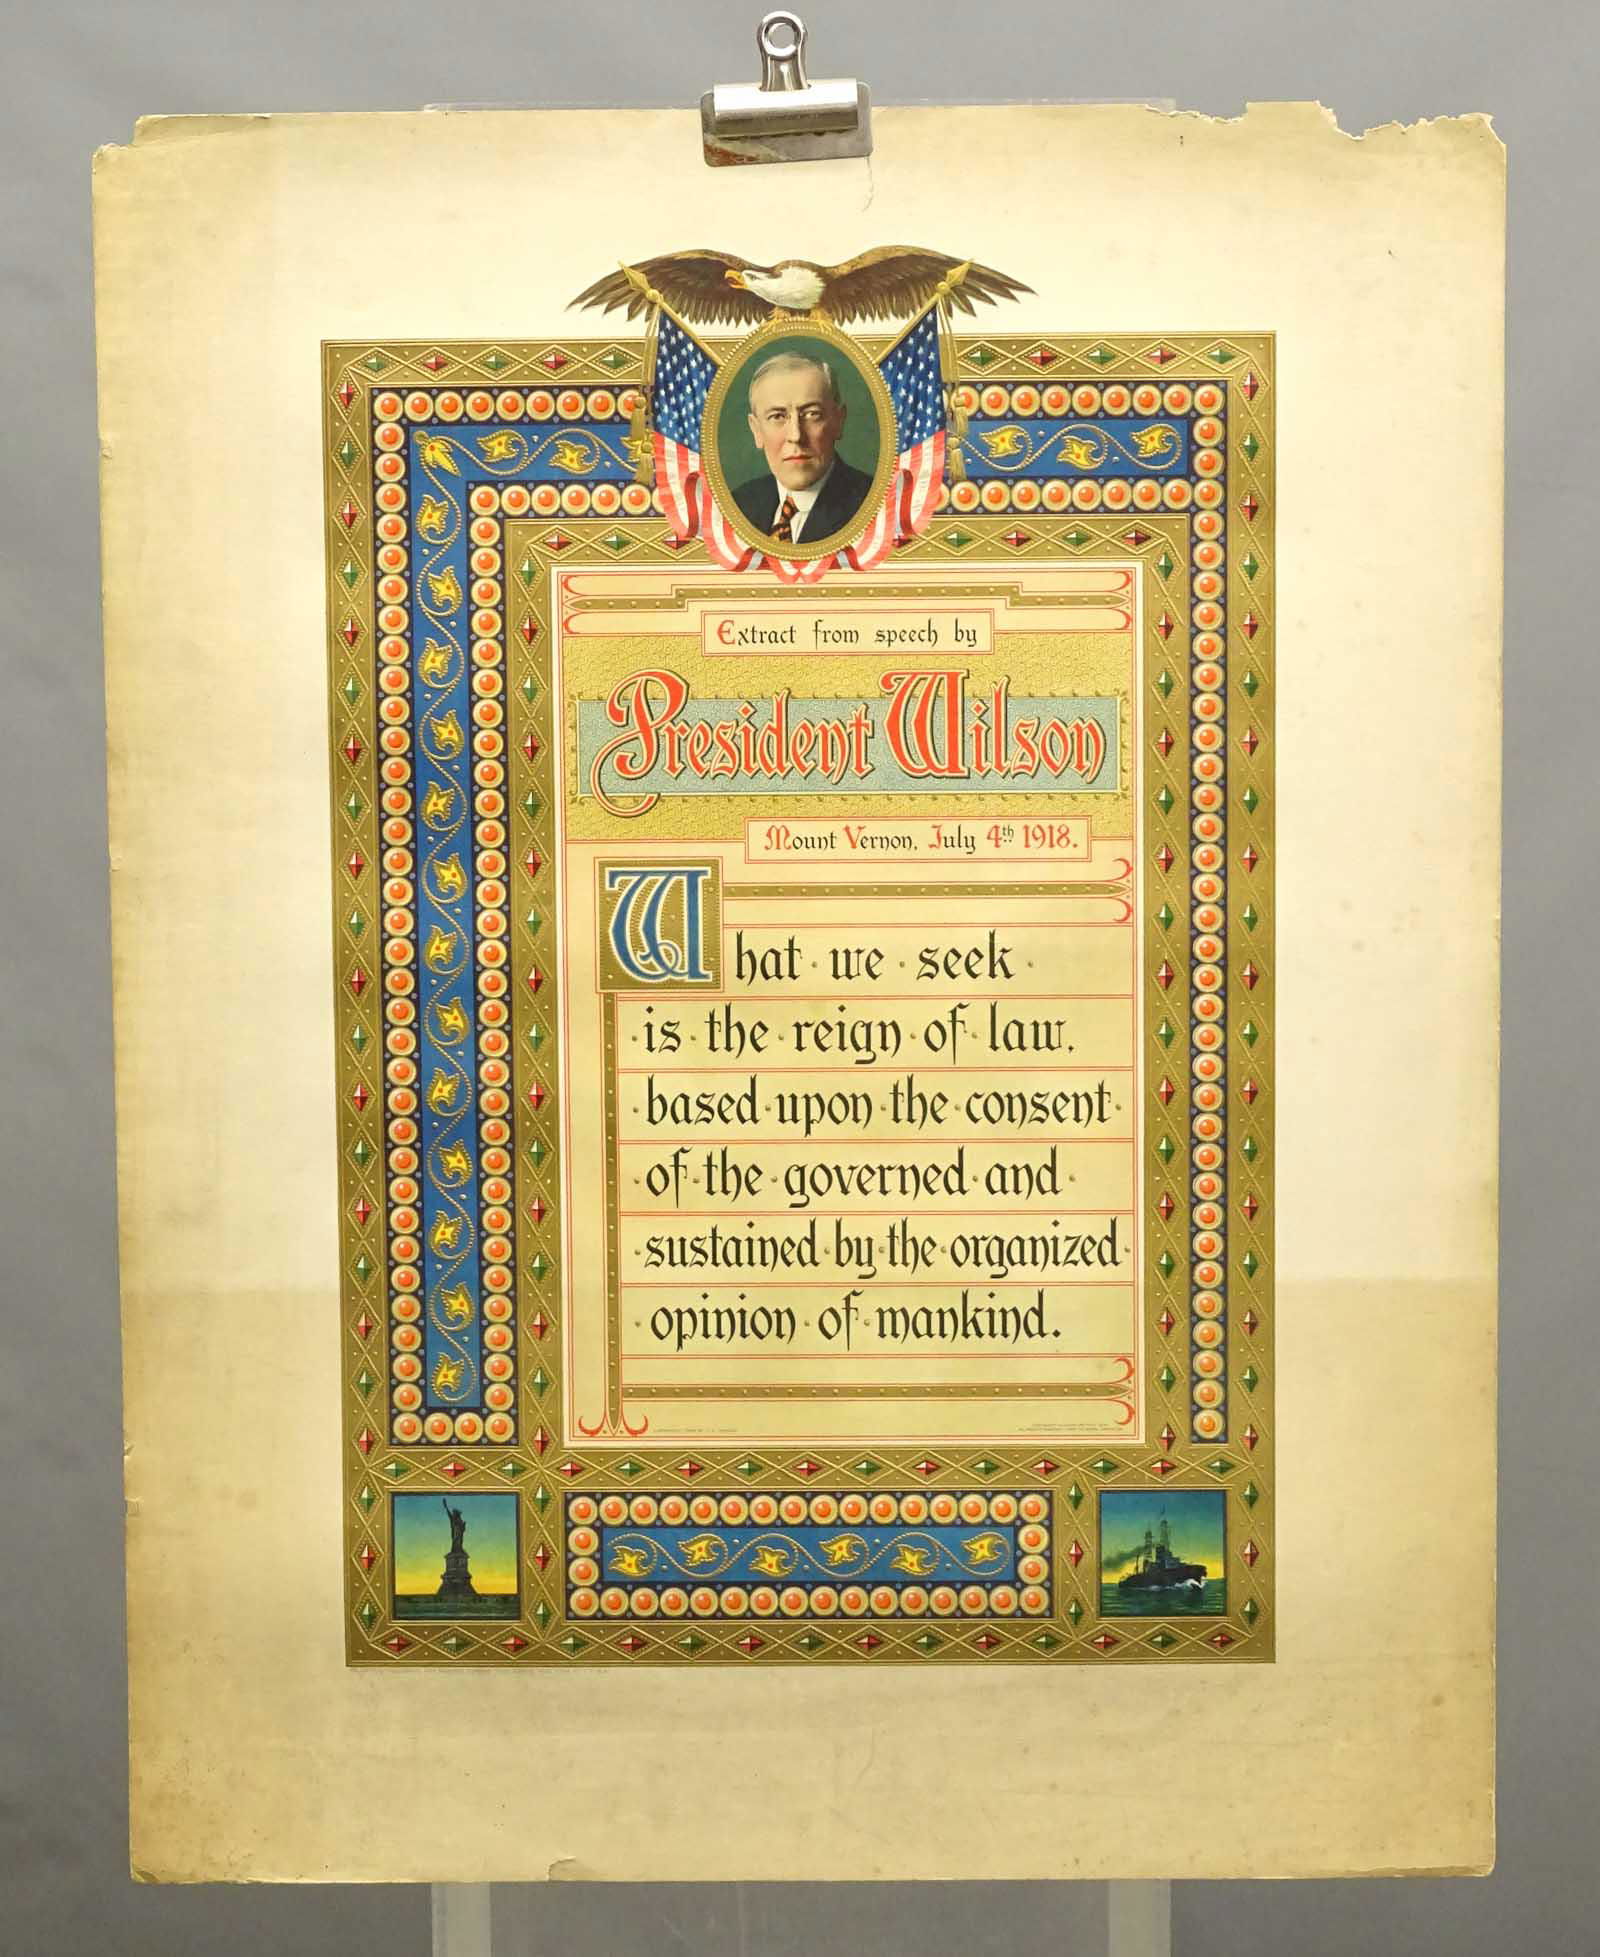 Extract from speech by
President Wilson
Mount Vernon, July 4th 1918.
What · we · seek ·
· is · the · reign · of · law,
· based · upon · the · consent ·
· of · the · governed · and ·
· sustained · by · the · organized ·
· opinion · of · mankind.